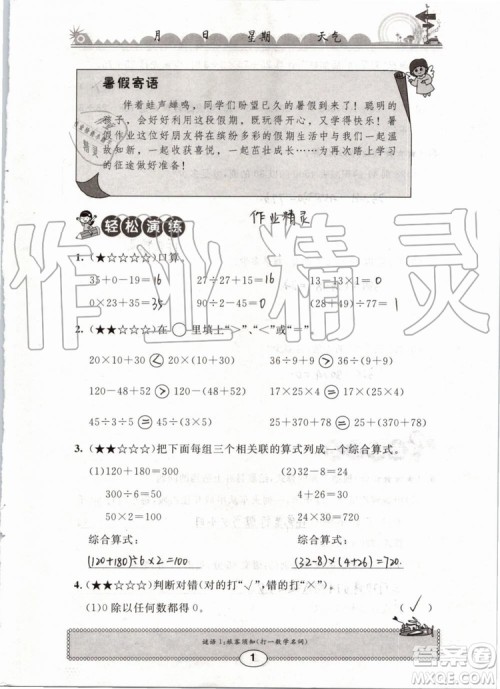 月 日 星期 天气
暑假寄语
伴着蛙声蝉鸣，同学们盼望已久的暑假到来了！聪明的
你们一定会好好利用这段假期，既玩得开心，又学得快乐！暑
假作业这位好朋友将在缤纷多彩的假期生活中与我们一起温
故知新，一起收获喜悦，一起茁壮成长……为再次踏上学习
的征途做好准备！
轻松演练
作业精灵
1. (★☆☆☆☆)口算。
35+0-19=16 27÷27+15=16 13-13×1=0
0×23+35=35 90÷2-45=0 (69+0)÷69=1
2. (★★☆☆☆)在○里填上“>”、“<”或“=”。
20×10+30<20×(10+30) 36÷9÷9<36÷(9÷9)
120-48+52>120-(48+52) 17×25×4=17×(25×4)
45÷3÷5=45÷(3×5) 25+370+78=25+(370+78)
3. (★★☆☆☆)把下面每组三个相关联的算式列成一个综合算式。
(1)120+180=300 (2)32-8=24
300÷6=50 4+26=30
50×2=100 24×30=720
综合算式： 综合算式：
(120+180)÷6×2=100 (32-8)×(4+26)=720
4. (★☆☆☆☆)判断对错(对的打“√”，错的打“×”)。
(1)0除以任何数都得0。 (√)
谜语1：旅客须知(打一数学名词)
1
作业精灵
答案圈
MXQE.COM